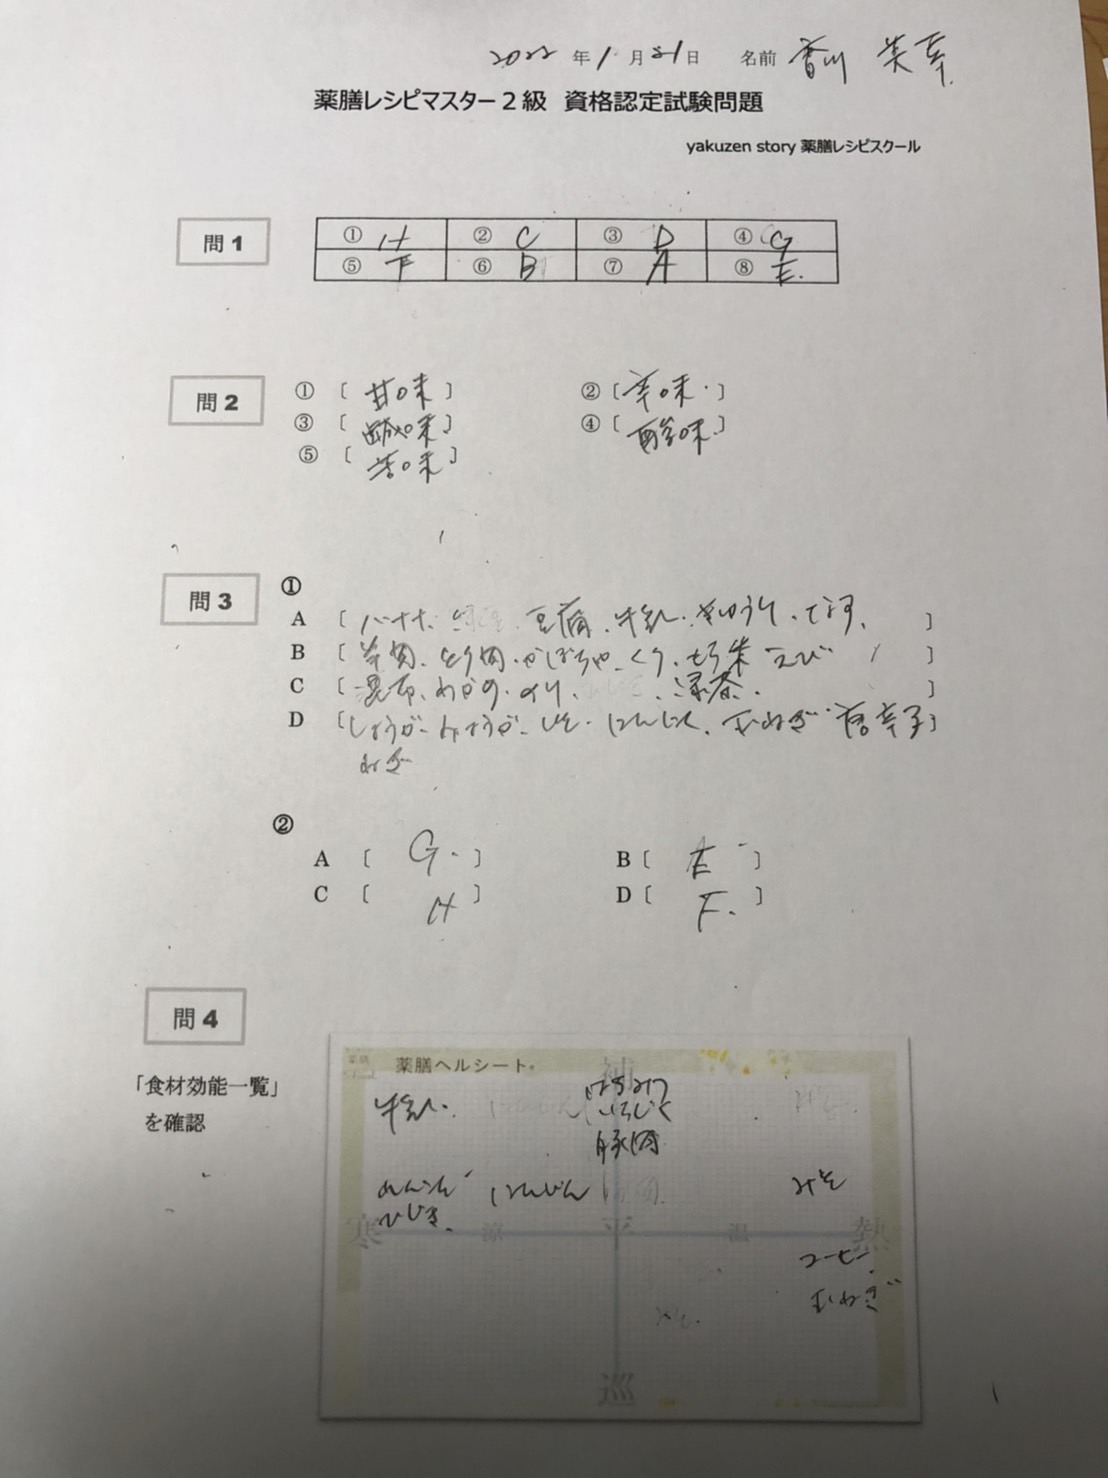 2022年1月21日 名前 香川 美幸
薬膳レシピマスター2級 資格認定試験問題
yakuzen story 薬膳レシピスクール
問1
① H ② C ③ D ④ G
⑤ F ⑥ B ⑦ A ⑧ E.
問2
① 〔 甘味 〕 ② 〔 辛味 〕
③ 〔 鹹味 〕 ④ 〔 酸味 〕
⑤ 〔 苦味 〕
問3
①
A 〔 バナナ、豆腐、牛乳、きゅうり、なす、 〕
B 〔 羊肉、とり肉、かぼちゃ、くり、もち米 えび 〕
C 〔 昆布、わかめ、のり、緑茶. 〕
D 〔 しょうが、みょうが、しそ、にんにく、玉ねぎ 唐辛子 〕
ねぎ
②
A 〔 G. 〕 B 〔 E 〕
C 〔 H 〕 D 〔 F. 〕
問4
「食材効能一覧」
を確認
薬膳ヘルシート
補
牛乳. はちみつ
いちじく
豚肉
れんこん にんじん みそ
ひじき
寒 涼 平 温 熱
コーヒー
玉ねぎ
巡